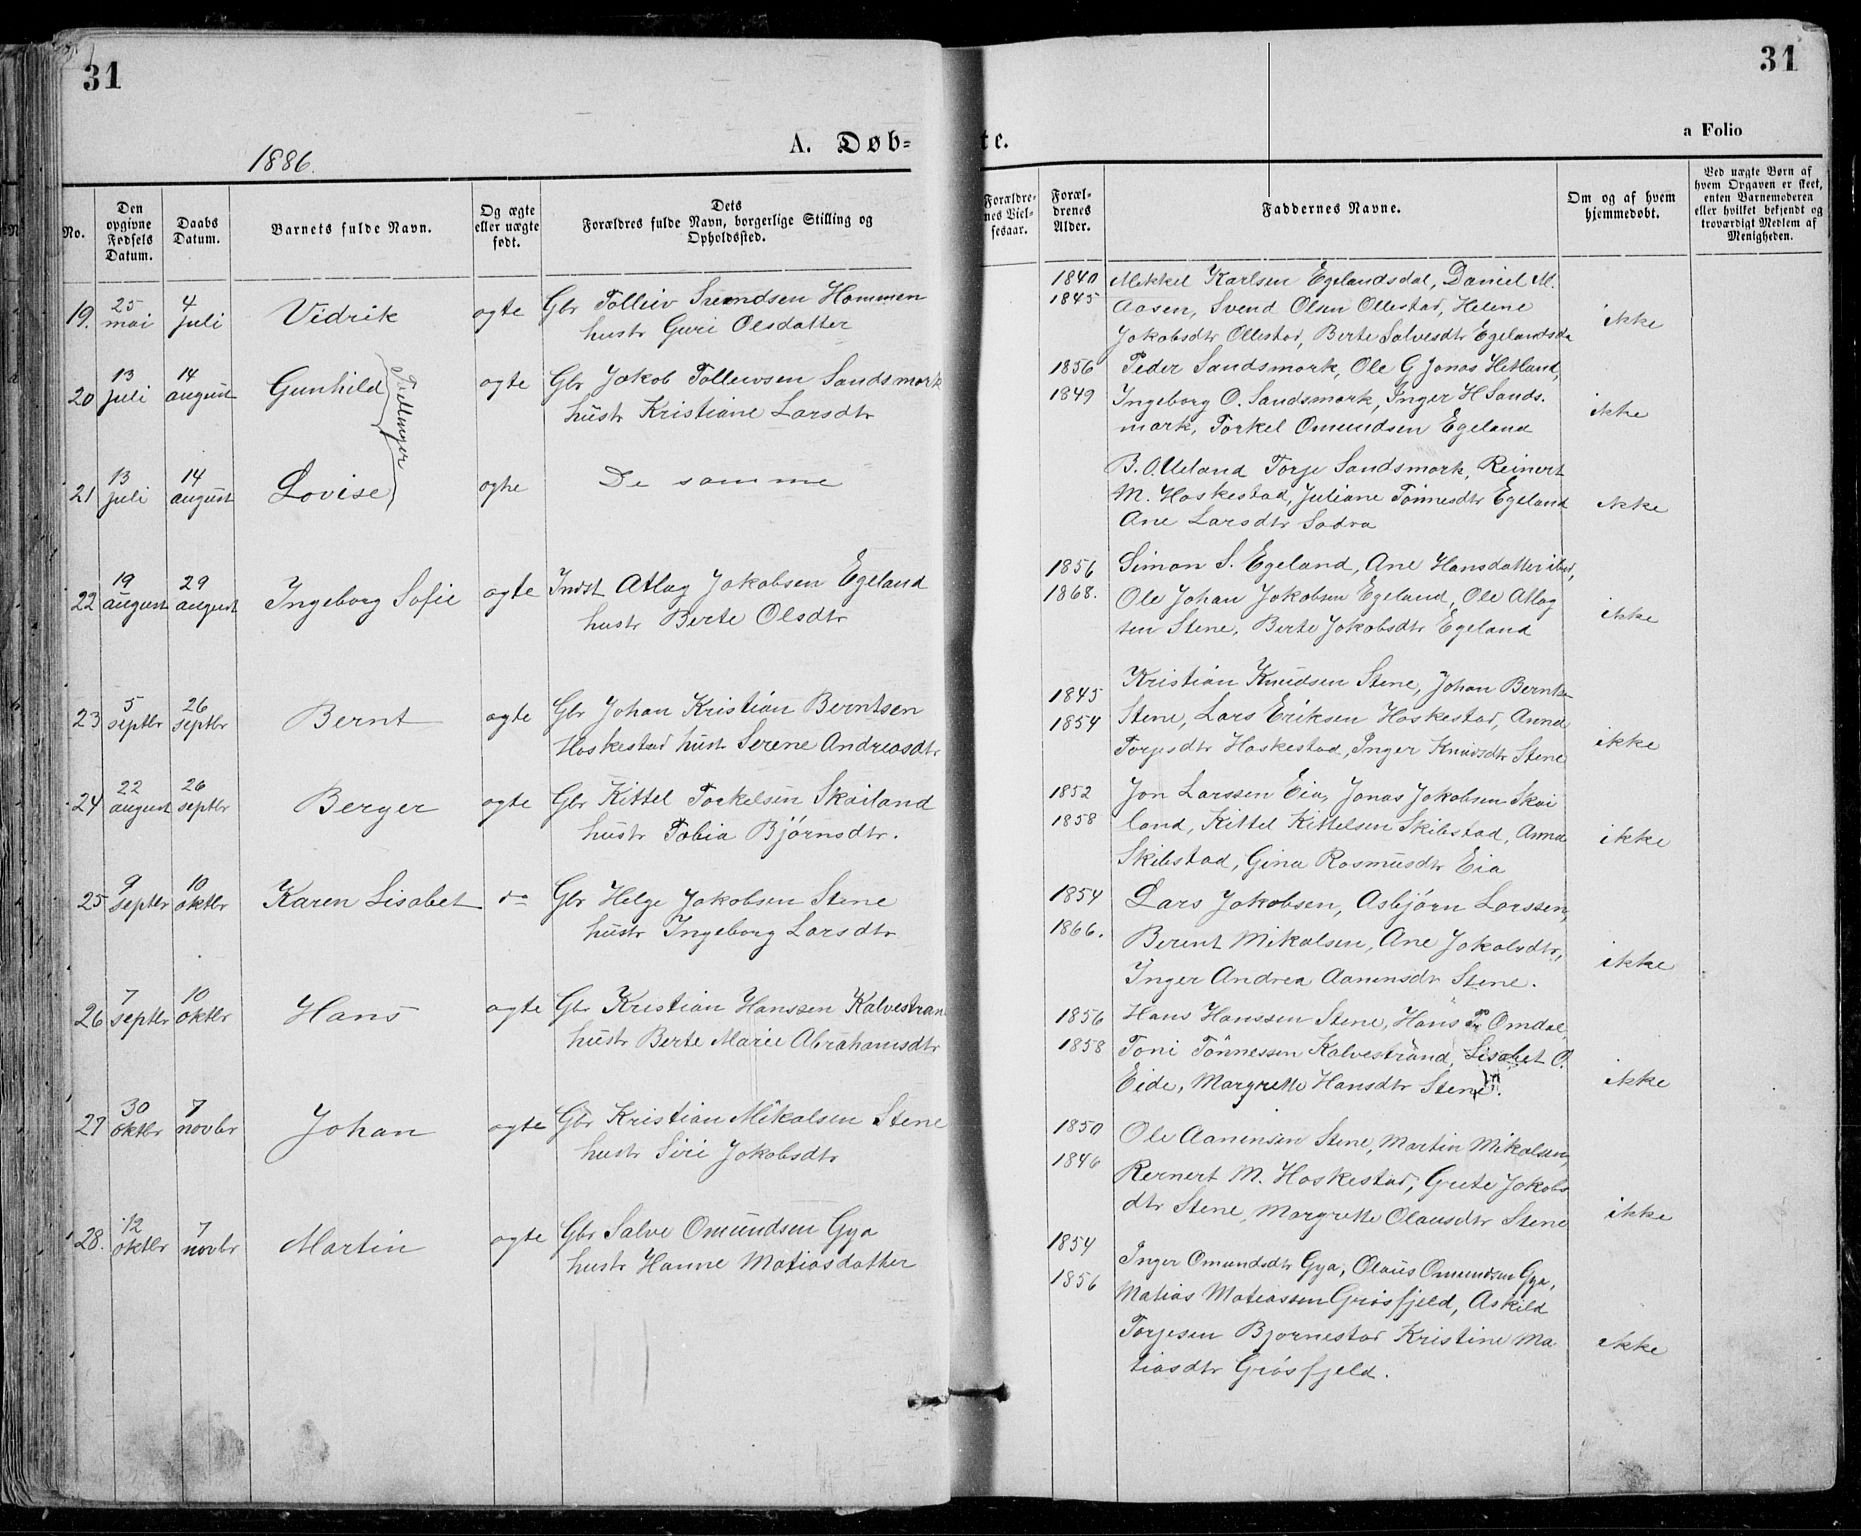 31
31
A. Døb-
te.
a Folio
1886.
No.
Den opgivne Fødsels Datum.
Daabs Datum.
Barnets fulde Navn.
Og ægte eller uægte født.
Dets Forældres fulde Navn, borgerlige Stilling og Opholdssted.
Forældrenes Vielsesaar.
Forældrenes Alder.
Faddernes Navne.
Om og af hvem hjemmedøbt.
Ved uægte Børn af hvem Opgaven er skeet, enten Barnemoderen eller hvilket bekjendt og troværdigt Medlem af Menigheden.
19. 25 mai 4 juli Vidrik ægte Gbr Tolliev Svendsen Hammen
hustr Guri Olsdatter
1840 Mikkel Karlsen Egelandsdal, Daniel M.
1845 Aasen, Svend Olsen Ollestad, Helene
Jakobsdtr Ollestad, Berte Salvesdtr Egelandsda
ikke
20 13 juli 14 august Gunhild ægte Gbr Jakob Tollevsen Sandsmark
hustr Kristiane Larsdtr
Tvillinger
1856 Peder Sandsmark, Ole G Jonas Hetland,
1849 Ingeborg O. Sandsmark, Inger H Sands.
mark, Torkel Omundsen Egeland
ikke
21 13 juli 14 august Lovise ægte De samme
B. O. Ueland Torje Sandsmark, Reinert
M. Haskestad, Juliane Tønnesdtr Egeland
Ane Larsdtr Sadra
ikke
22 19 august 29 august Ingeborg Sofie ægte Indst Atlag Jakobsen Egeland
hustr Berte Olsdtr
1856 Simon S. Egeland, Ane Hansdatter ibid,
1868. Ole Johan Jakobsen Egeland, Ole Atlag
sen Stene, Berte Jakobsdtr Egeland
ikke
23 5 septbr 26 septbr Bernt ægte Gbr Johan Kristian Berntsen
Haskestad hustr Serene Andreasdtr
Kristian Knudsen Stene, Johan Bernts
1845
1854 Stene, Lars Eriksen Haskestad, Anna
Torjesdtr Haskestad, Inger Knudsdtr Stene
ikke
24 22 august 26 septbr Berger ægte Gbr Kittel Torkelsen Skailand
hustr Tobia Bjørnsdtr.
1852 Jon Larssen Eia, Jonas Jakobsen Skai
1858 land, Kittel Kittelsen Skibstad, Anna
Skibstad, Gina Rasmusdtr Eia
ikke
25 9 septbr 10 oktbr Karen Lisabet do Gbr Helge Jakobsen Stene
hustr Ingeborg Larsdtr
1854 Lars Jakobsen, Asbjørn Larssen,
1866. Berent Mikalsen, Ane Jakobsdtr,
Inger Andrea Aanensdtr Stene.
ikke
26 7 septbr 10 oktbr Hans ægte Gbr Kristian Hanssen Kalvestran
hustr Berte Marie Abrahamsdtr
1856 Hans Hanssen Stene, Hans P Omdal,
1858 Toni Tønnessen Kalvestrand, Lisabet O.
Eide, Margrette Hansdtr Stene.
ikke
27 30 oktbr 7 novbr Johan ægte Gbr Kristian Mikalsen Stene
hustr Siri Jakobsdtr
1850 Ole Aanensen Stene, Martin Mikalsen,
1846 Rernert M. Haskestad, Grete Jakobs
dtr Stene, Margrette Olausdtr Stene
ikke
28. 12 oktbr 7 novbr Martin ægte Gbr Salve Omundsen Gya
hustr Hanne Matiasdatter
1854 Inger Omundsdtr Gya, Olaus Omundsen Gya,
1856 Matias Matiassen Grøsfjeld, Askild
Torjesen Bjørnestad Kristine Ma
tiasdtr Grøsfjeld.
ikke